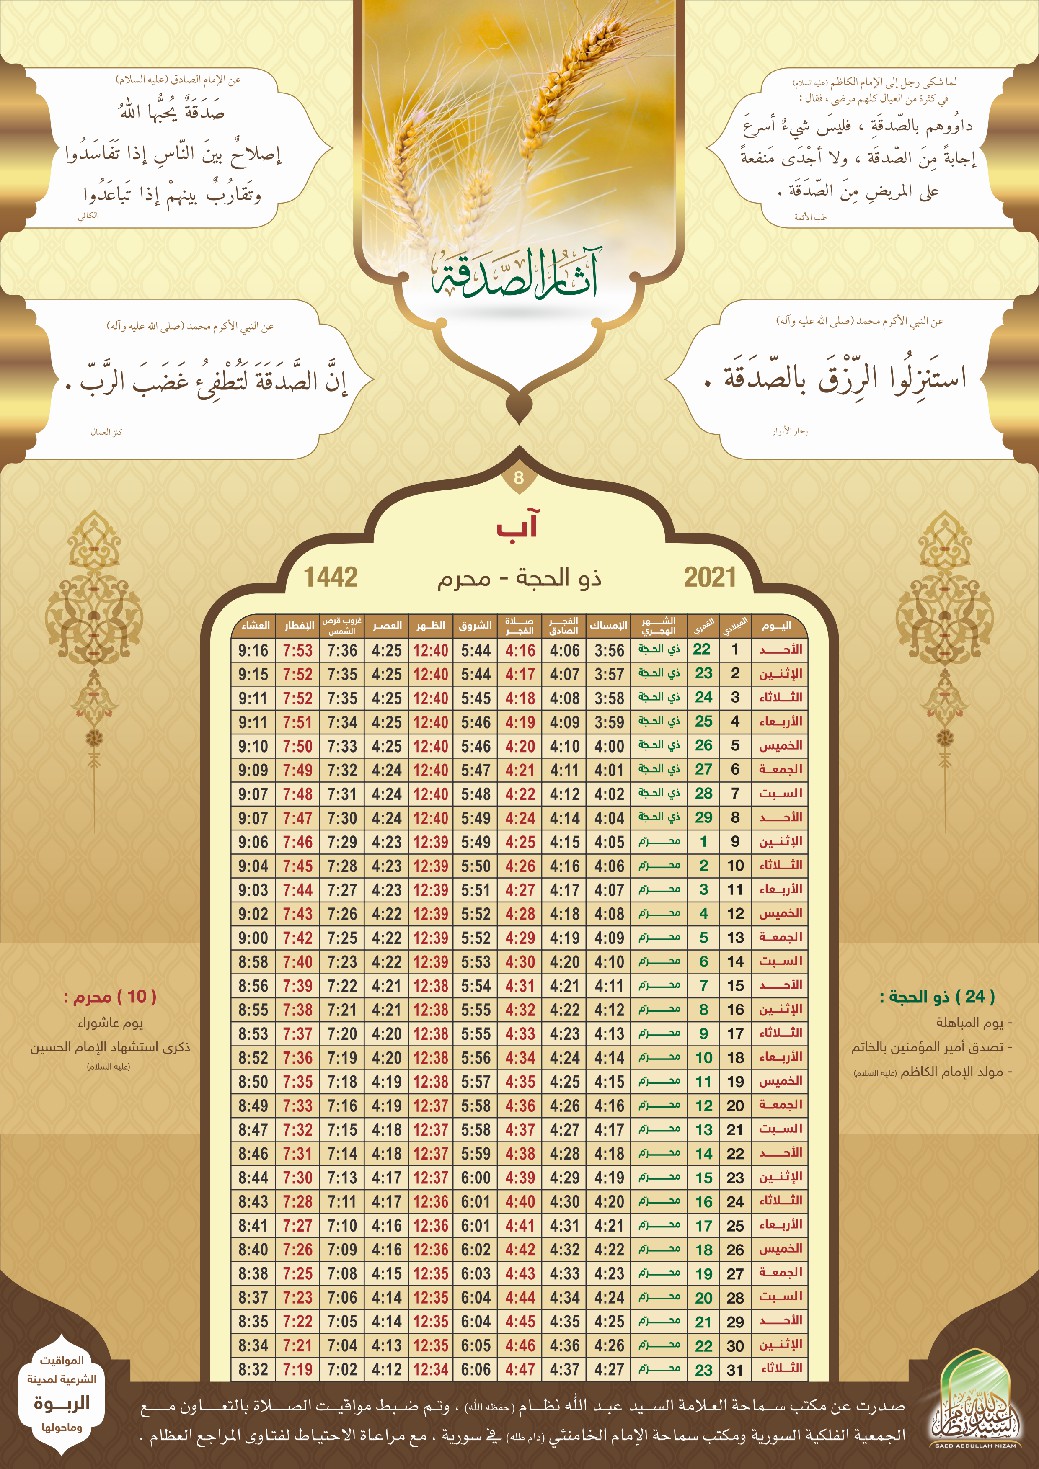 لما شكى رجل إلى الإمام الكاظم (عليه السلام)
في كثرة من العيال كلهم مرضى ، فقال :
داوُوهم بالصّدقَةِ ، فليسَ شيءٌ أسرعَ
إجابةً مِنَ الصّدقة ، ولا أجْدَى مَنفعةً
على المريضِ مِنَ الصّدَقَة .
طب الأئمة
عن الإمام الصادق (عليه السلام)
صَدَقَةٌ يُحبُّها اللهُ
إصلاحٌ بينَ النّاسِ إذا تَفَاسَدُوا
وتَقارُبٌ بينهمْ إذا تَباعَدُوا
الكافي
آثار الصّدقة
عن النبي الأكرم محمد (صلى الله عليه وآله)
استَنزِلُوا الرِّزْقَ بالصّدَقَة .
بحار الأنوار
عن النبي الأكرم محمد (صلى الله عليه وآله)
إنَّ الصَّدَقَةَ لَتُطْفِئُ غَضَبَ الرَّبّ .
كنز العمال
8
آب
2021 ذو الحجة - محرم 1442
اليوم الميلادي القمري الشهر الهجري الإمساك الفجر الصادق صلاة الفجر الشروق الظهر العصر غروب قرص الشمس الإفطار العشاء
الأحد 1 22 ذي الحجة 3:56 4:06 4:16 5:44 12:40 4:25 7:36 7:53 9:16
الإثنين 2 23 ذي الحجة 3:57 4:07 4:17 5:44 12:40 4:25 7:35 7:52 9:15
الثلاثاء 3 24 ذي الحجة 3:58 4:08 4:18 5:45 12:40 4:25 7:35 7:52 9:11
الأربعاء 4 25 ذي الحجة 3:59 4:09 4:19 5:46 12:40 4:25 7:34 7:51 9:11
الخميس 5 26 ذي الحجة 4:00 4:10 4:20 5:46 12:40 4:25 7:33 7:50 9:10
الجمعة 6 27 ذي الحجة 4:01 4:11 4:21 5:47 12:40 4:24 7:32 7:49 9:09
السبت 7 28 ذي الحجة 4:02 4:12 4:22 5:48 12:40 4:24 7:31 7:48 9:07
الأحد 8 29 ذي الحجة 4:04 4:14 4:24 5:49 12:40 4:24 7:30 7:47 9:07
الإثنين 9 1 محرم 4:05 4:15 4:25 5:49 12:39 4:23 7:29 7:46 9:06
الثلاثاء 10 2 محرم 4:06 4:16 4:26 5:50 12:39 4:23 7:28 7:45 9:04
الأربعاء 11 3 محرم 4:07 4:17 4:27 5:51 12:39 4:23 7:27 7:44 9:03
الخميس 12 4 محرم 4:08 4:18 4:28 5:52 12:39 4:22 7:26 7:43 9:02
الجمعة 13 5 محرم 4:09 4:19 4:29 5:52 12:39 4:22 7:25 7:42 9:00
السبت 14 6 محرم 4:10 4:20 4:30 5:53 12:39 4:22 7:23 7:40 8:58
الأحد 15 7 محرم 4:11 4:21 4:31 5:54 12:38 4:21 7:22 7:39 8:56
الإثنين 16 8 محرم 4:12 4:22 4:32 5:55 12:38 4:21 7:21 7:38 8:55
الثلاثاء 17 9 محرم 4:13 4:23 4:33 5:55 12:38 4:20 7:20 7:37 8:53
الأربعاء 18 10 محرم 4:14 4:24 4:34 5:56 12:38 4:20 7:19 7:36 8:52
الخميس 19 11 محرم 4:15 4:25 4:35 5:57 12:38 4:19 7:18 7:35 8:50
الجمعة 20 12 محرم 4:16 4:26 4:36 5:58 12:37 4:19 7:16 7:33 8:49
السبت 21 13 محرم 4:17 4:27 4:37 5:58 12:37 4:18 7:15 7:32 8:47
الأحد 22 14 محرم 4:18 4:28 4:38 5:59 12:37 4:18 7:14 7:31 8:46
الإثنين 23 15 محرم 4:19 4:29 4:39 6:00 12:37 4:17 7:13 7:30 8:44
الثلاثاء 24 16 محرم 4:20 4:30 4:40 6:01 12:36 4:17 7:11 7:28 8:43
الأربعاء 25 17 محرم 4:21 4:31 4:41 6:01 12:36 4:16 7:10 7:27 8:41
الخميس 26 18 محرم 4:22 4:32 4:42 6:02 12:36 4:16 7:09 7:26 8:40
الجمعة 27 19 محرم 4:23 4:33 4:43 6:03 12:35 4:15 7:08 7:25 8:38
السبت 28 20 محرم 4:24 4:34 4:44 6:04 12:35 4:14 7:06 7:23 8:37
الأحد 29 21 محرم 4:25 4:35 4:45 6:04 12:35 4:14 7:05 7:22 8:35
الإثنين 30 22 محرم 4:26 4:36 4:46 6:05 12:35 4:13 7:04 7:21 8:34
الثلاثاء 31 23 محرم 4:27 4:37 4:47 6:06 12:34 4:12 7:02 7:19 8:32
( 24 ) ذو الحجة :
- يوم المباهلة
- تصدق أمير المؤمنين بالخاتم
- مولد الإمام الكاظم (عليه السلام)
( 10 ) محرم :
يوم عاشوراء
ذكرى استشهاد الإمام الحسين
(عليه السلام)
المواقيت
الشرعية لمدينة
الربوة
وماحولها
صدرت عن مكتب سماحة العلامة السيد عبد الله نظام (حفظه الله) ، وتم ضبط مواقيت الصلاة بالتعاون مع
الجمعية الفلكية السورية ومكتب سماحة الإمام الخامنئي (دام ظله) في سورية ، مع مراعاة الاحتياط لفتاوى المراجع العظام .
السيد عبد الله نظام
SAED ABDULLAH NIZAM